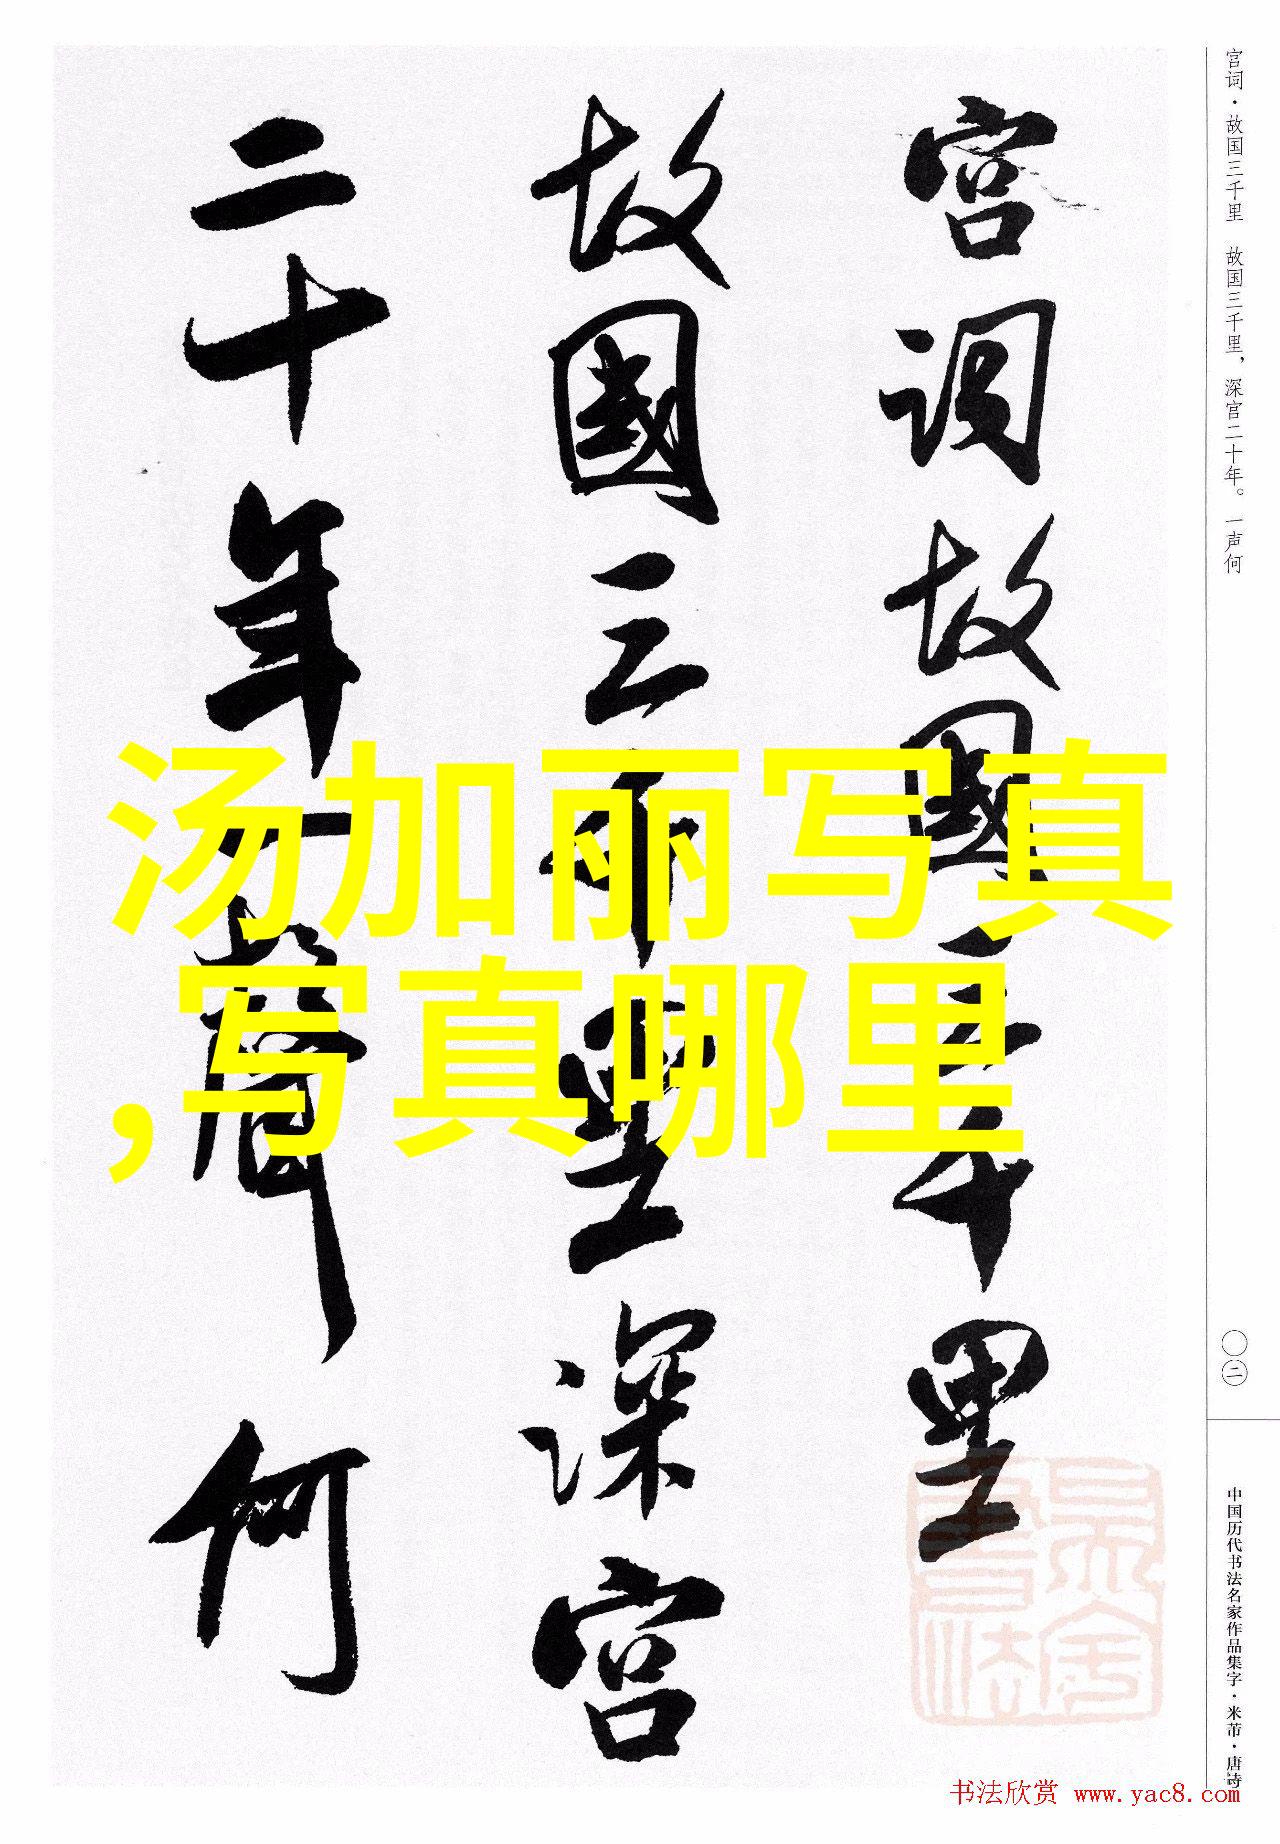 宫词·故国三千里 故国三千里，深宫二十年。一声何
宫词故國三千里
故國三千里深宫
二十年一聲何
汤加丽写真
,写真哪里
〇二
中国历代书法名家作品集字·米芾·唐诗
书法欣赏 www.yac8.com